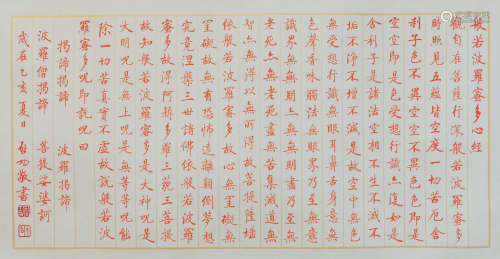 般若波羅蜜多心經
觀自在菩薩行深般若波羅蜜多
時照見五蘊皆空度一切苦厄舍
利子色不異空空不異色色即是
空空即是色受想行識亦復如是
舍利子是諸法空相不生不滅不
垢不淨不增不減是故空中無色
無受想行識無眼耳鼻舌身意無
色聲香味觸法無眼界乃至無意
識界無無明亦無無明盡乃至無
老死亦無老死盡無苦集滅道無
智亦無得以無所得故菩提薩埵
依般若波羅蜜多故心無罣礙無
罣礙故無有恐怖遠離顛倒夢想
究竟涅槃三世諸佛依般若波羅
蜜多故得阿耨多羅三藐三菩提
故知般若波羅蜜多是大神咒是
大明咒是無上咒是無等等咒能
除一切苦真實不虛故說般若波
羅蜜多咒即說咒曰
揭諦揭諦　波羅揭諦
波羅僧揭諦　菩提娑婆訶
歲在乙亥夏日　啟功敬書